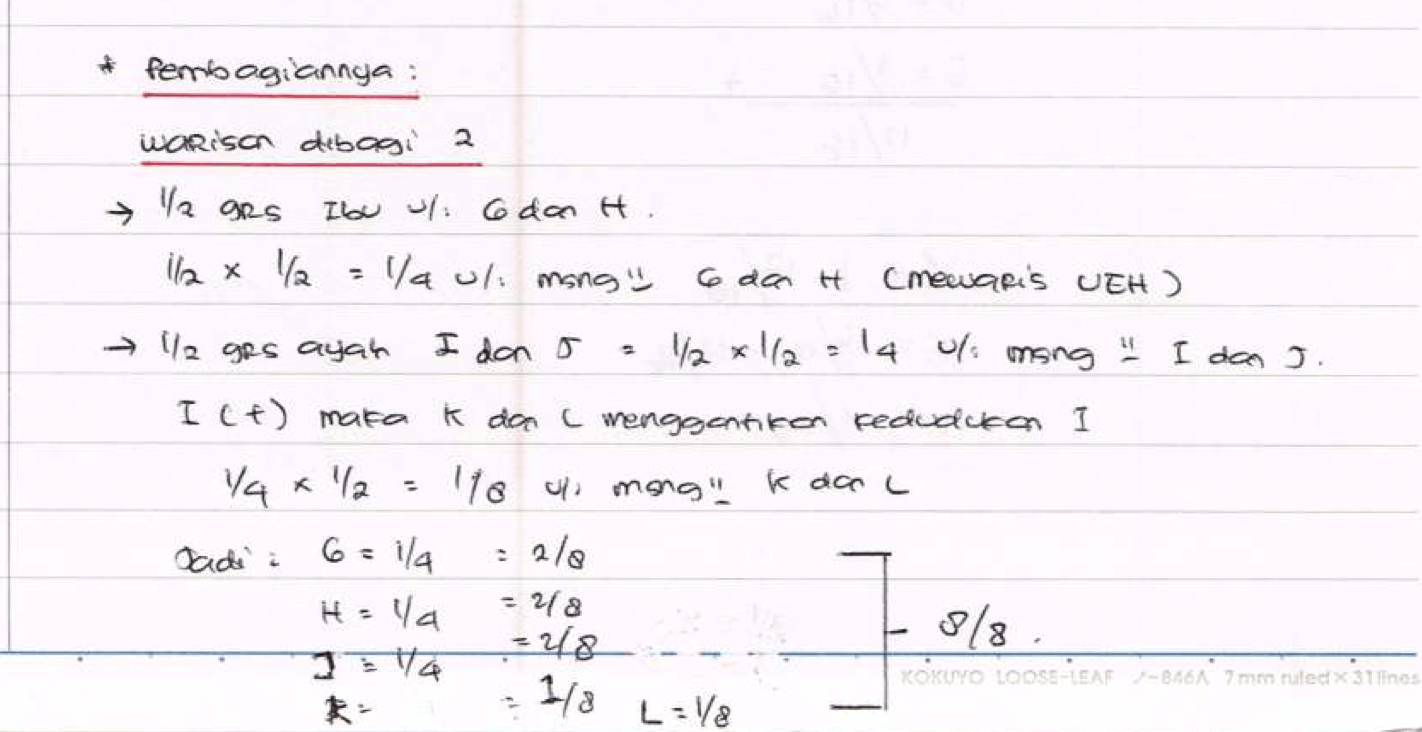 * Pembagiannya :
waRisan dibagi 2
→ 1/2 gRs Ibu u/: G dan H.
1/2 x 1/2 = 1/4 u/: msng" G dan H (mewaRis UEH)
→ 1/2 gRs ayah I dan J = 1/2 x 1/2 = 1/4 u/: msng" I dan J.
I (†) maka K dan L menggantikan kedudukan I
1/4 x 1/2 = 1/8 u/: msng" K dan L
Jadi : G = 1/4 = 2/8
H = 1/4 = 2/8
J = 1/4 = 2/8
8/8.
KOKUYO LOOSE-LEAF ノ-846A 7mm ruled × 31 lines
K = = 1/8 L = 1/8